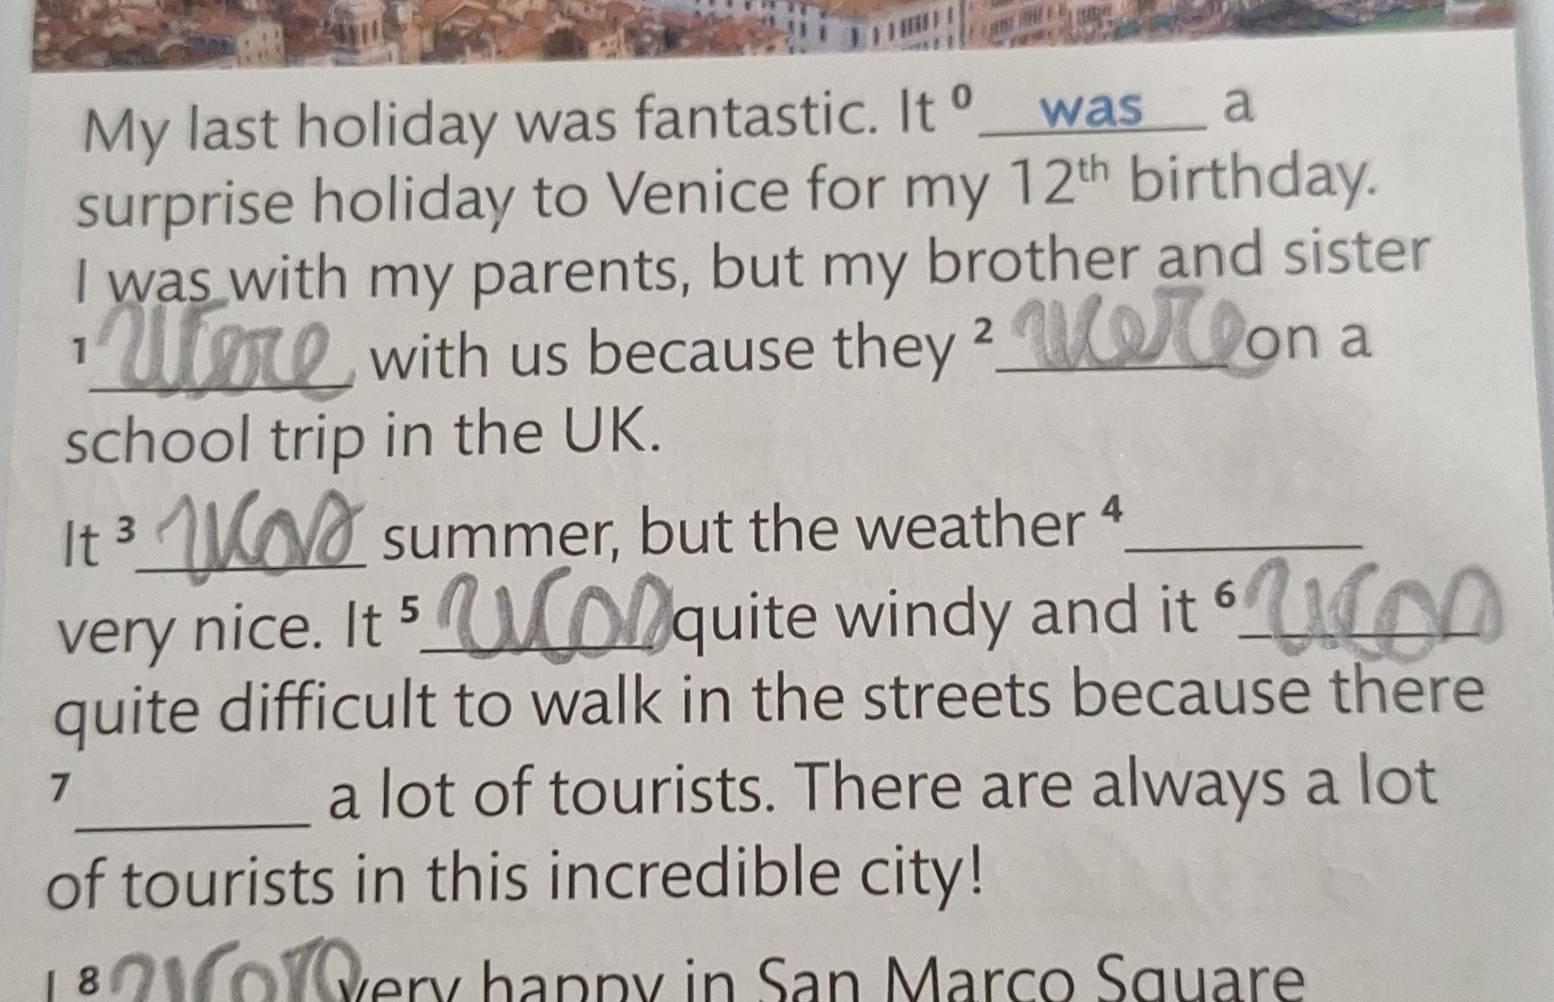 My last holiday was fantastic. It ⁰ was a
surprise holiday to Venice for my 12ᵗʰ birthday.
I was with my parents, but my brother and sister
¹ were with us because they ² were on a
school trip in the UK.
It ³ was summer, but the weather ⁴
very nice. It ⁵ was quite windy and it ⁶ was
quite difficult to walk in the streets because there
⁷ a lot of tourists. There are always a lot
of tourists in this incredible city!
I ⁸ were very happy in San Marco Square